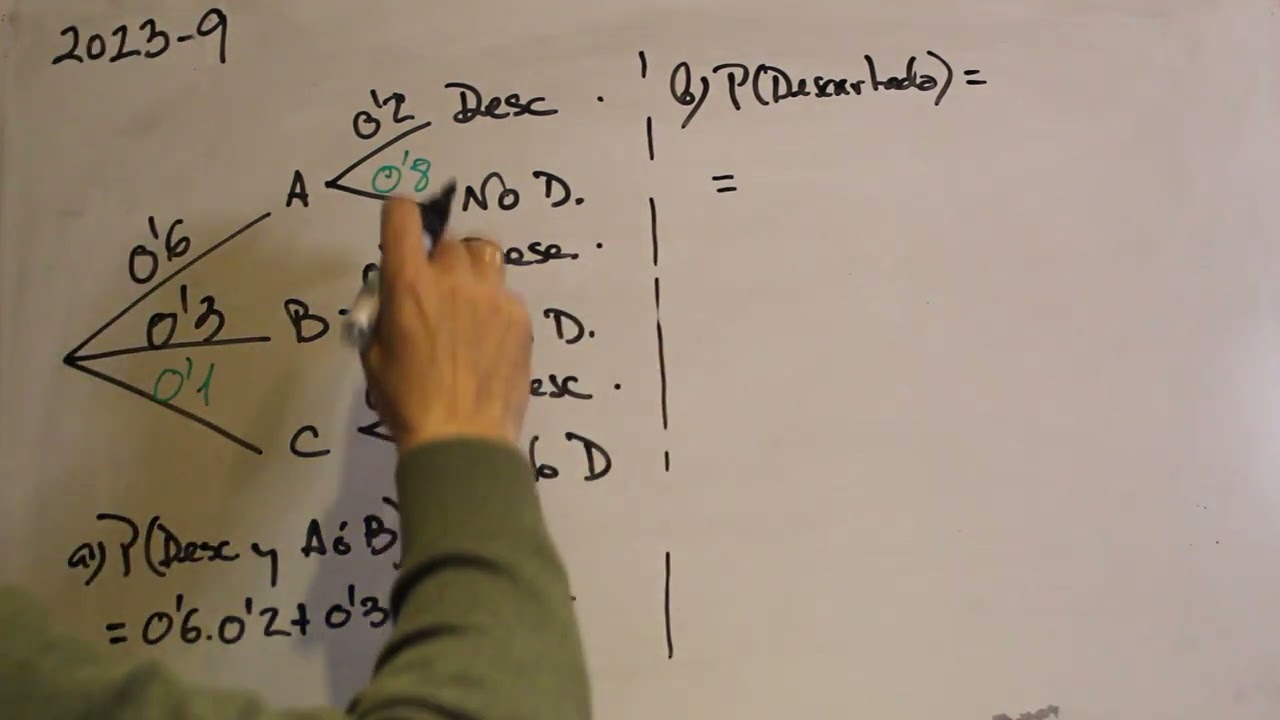 2023-9
0'2 Desc .
A 0'8 No D.
0'6
B
0'3
D.
0'1
C
D
a) P(Desc y A ó B)
= 0'6.0'2+0'3
b) P(Descartado) =
=